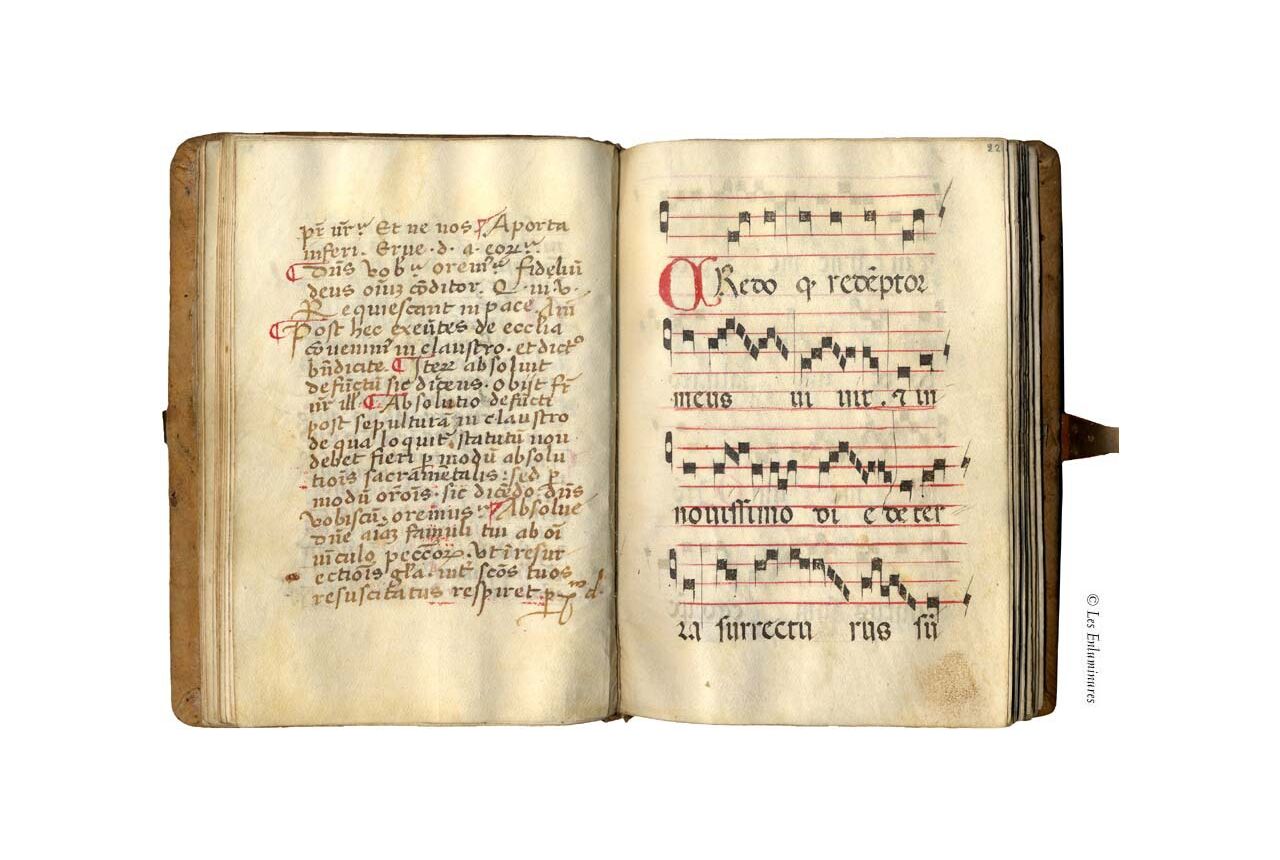 pr̄ nrꝰ Et ne nos Aporta
inferi. Erue · d · a · eorꝝ
Dn̄s vobꝰ oremꝰ fideliū
deus oīuꝫ cōditor. Q · iii · v ·
Requiescant in pace Am̄
Post hec exeūtes de ecclīa
cōueniūt in claustro · et dictꝰ
bn̄dicite. Iteꝝ absoluit
defūctū sic dicens · Obijt fr̄
nr̄ ill̄ Absolutio defūcti
post sepulturā in claustro
de qua loquit̄ statutū non
debet fieri p̱ modū absolu
tiōis sacramētalis: sed p̱
modū orōis · sic dicēdo · Dn̄s
vobiscū · oremus Absolue
dn̄e aīaꝫ famuli tui ab oī
vīculo peccōꝝ · vt ī resur
ectiōis gl̄a · int̄ scōs tuos
resuscitatus respiret p̱
22
CRedo ꝙ redēptor
meus ui uit · ⁊ in
nouissimo di e de ter
ra surrectu rus sū
© Les Enluminures